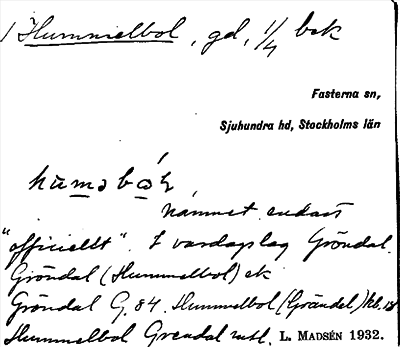 Hummelbol, gd, 1/4 bsk
Fasterna sn,
Sjuhundra hd, Stockholms län
hùməbɷ́ɫ,
Namnet endast
"officiellt". I vardagslag Gröndal.
Gröndal (Hummelbol) ek
Gröndal G. 84. Hummelbol (Gröndel)
Hummelbol Grendal L. MADSÉN 1932.